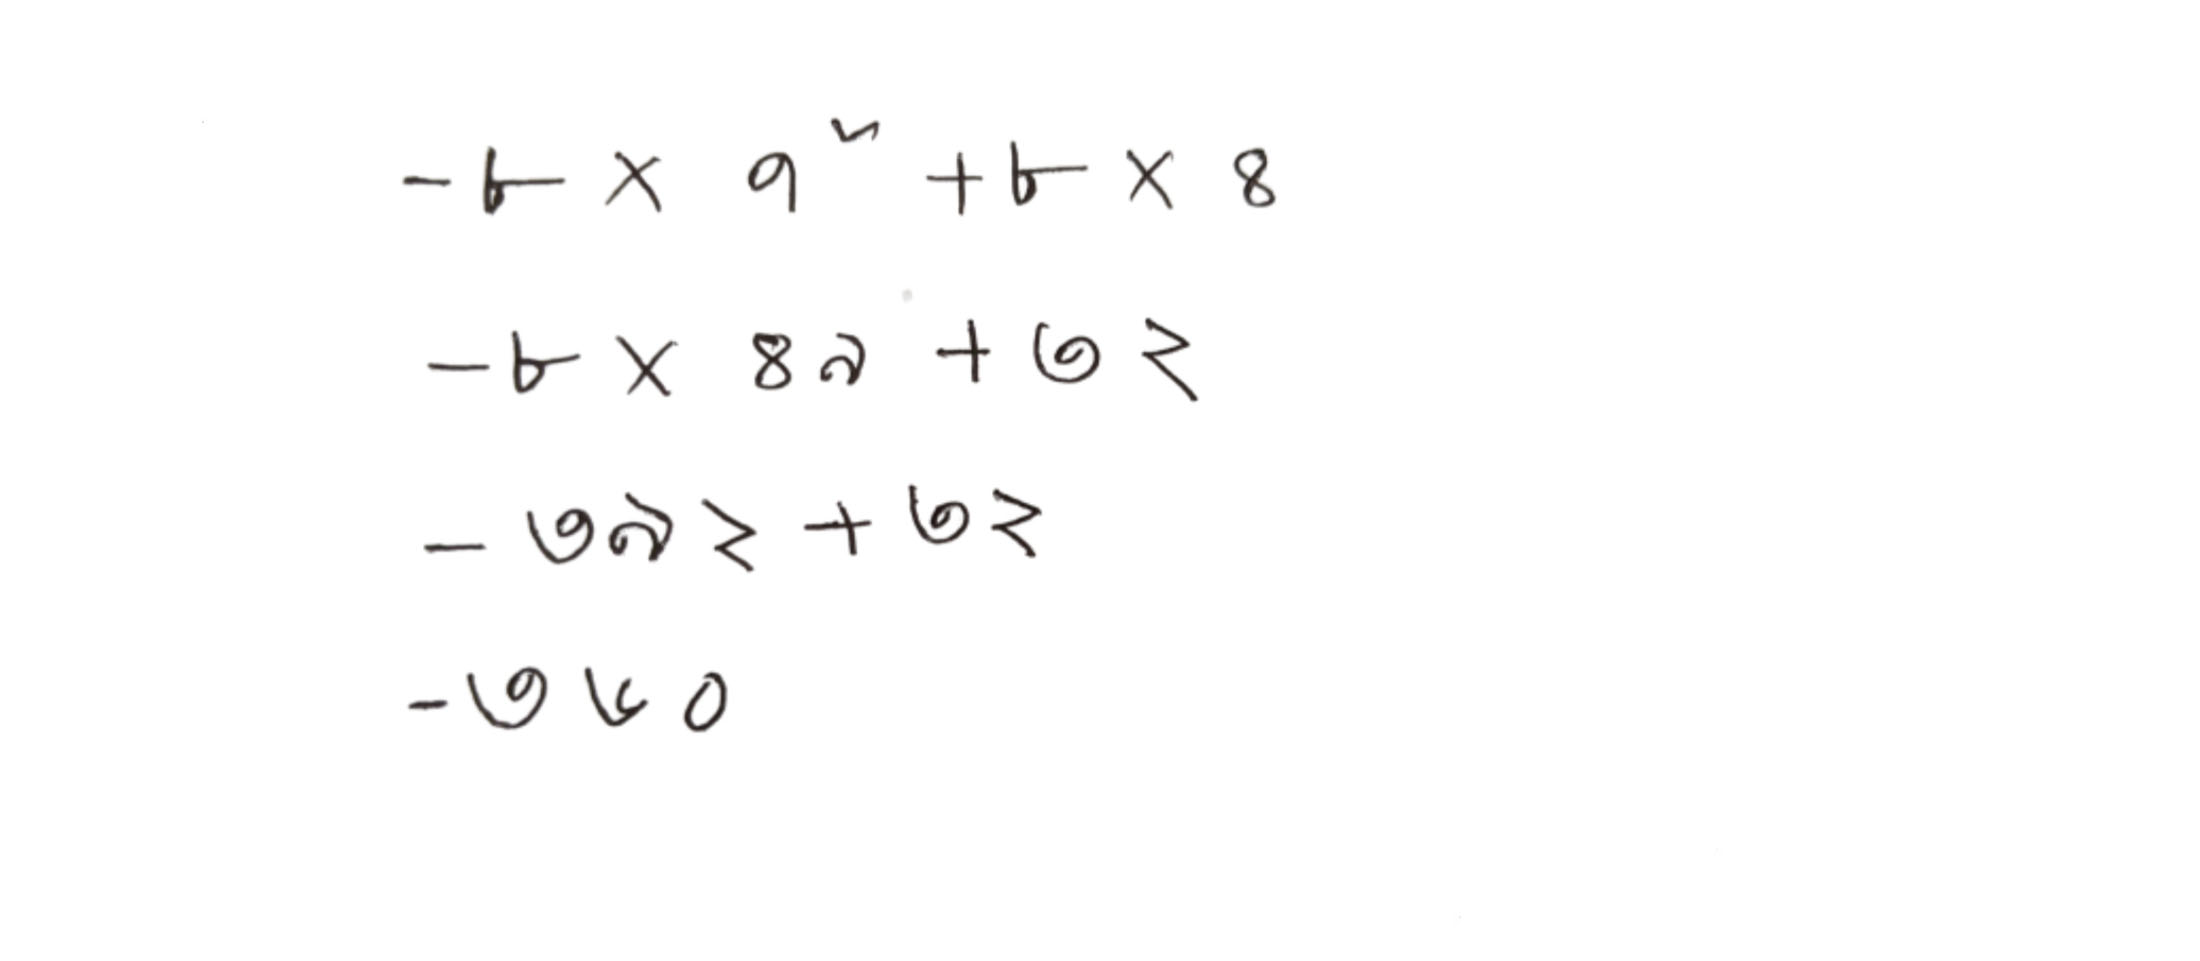 -৮ × ৭² + ৮ × ৪
-৮ × ৪৯ + ৩২
- ৩৯২ + ৩২
-৩৬০